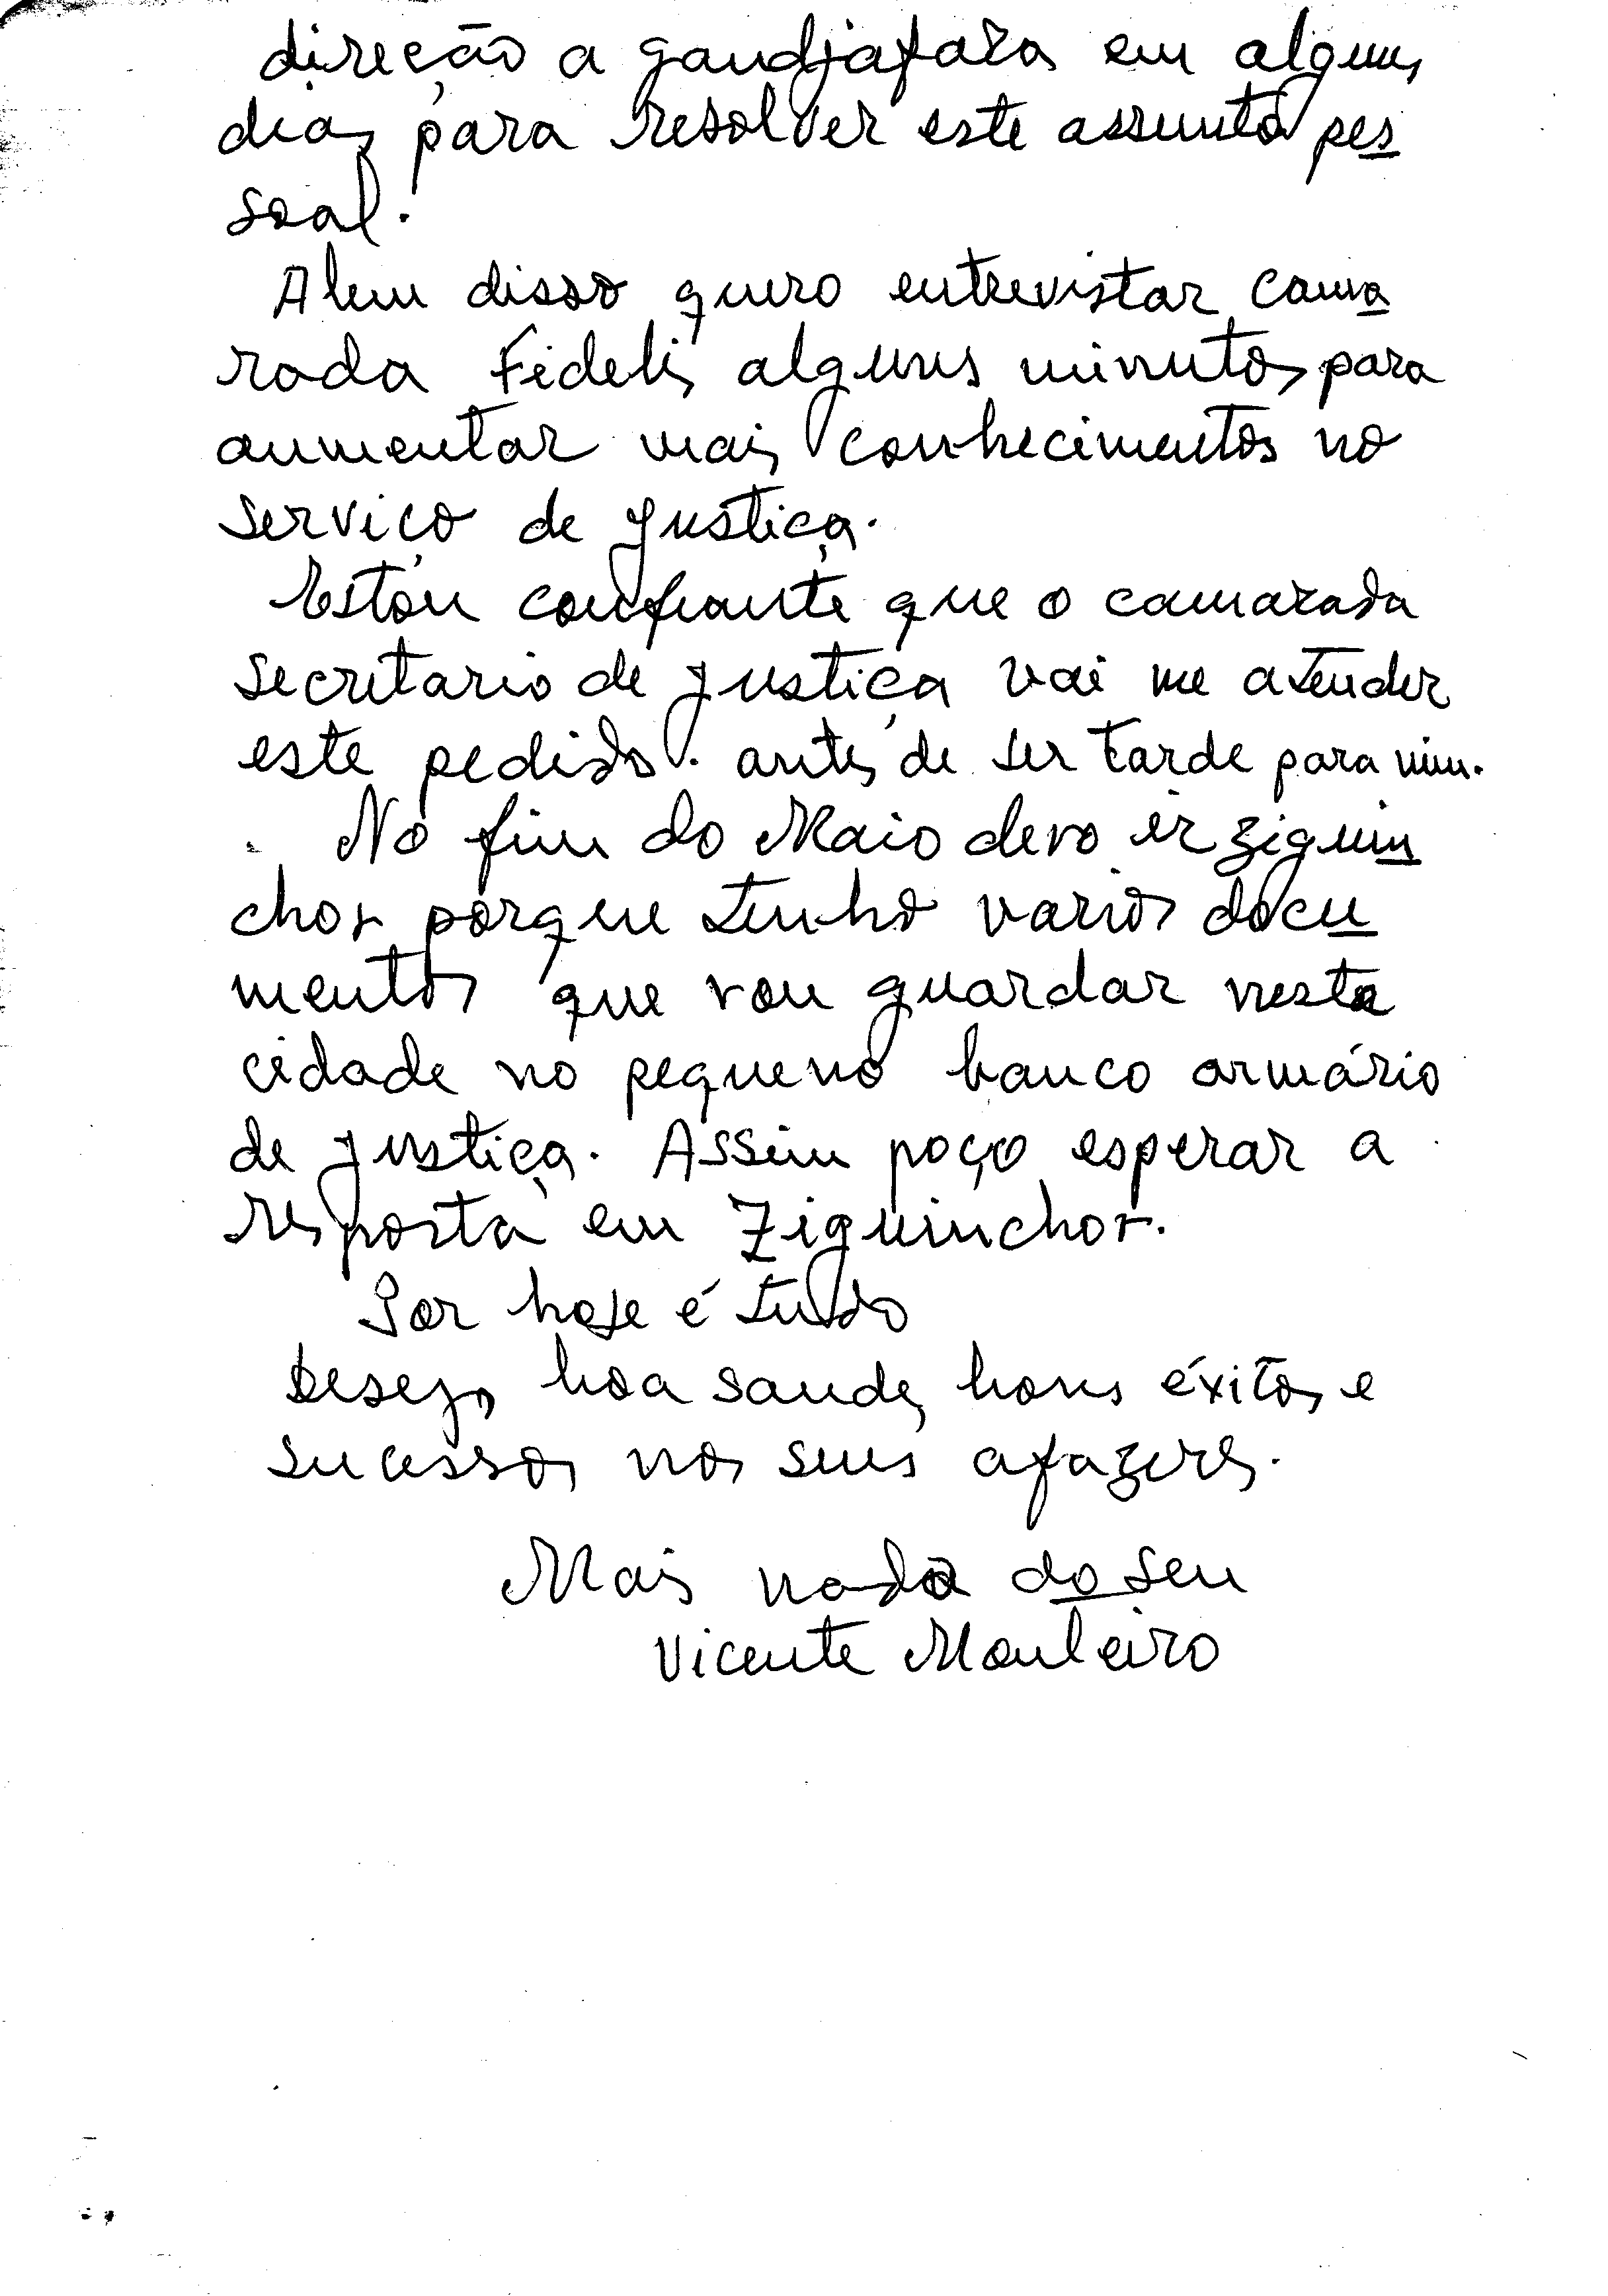 direção a gandjafara em alguns
dias para resolver este assunto pes
soal.
Alem disso quero entrevistar cama
rada Fidelis alguns minutos para
aumentar mais conhecimentos no
serviço de justiça.
Estou confiante que o camarada
secretario de justiça vai me atender
este pedido. antes de ser tarde para mim.
No fim do Maio devo ir ziguin
chor porque tenho varios docu
mentos que vou guardar nesta
cidade no pequeno banco armário
de justiça. Assim poço esperar a
resposta em Ziguinchor.
Por hoje é tudo
Desejo boa saude, bons éxitos e
sucessos nos seus afazeres.
Mais nada do seu
Vicente Monteiro